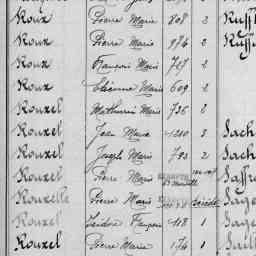 Roux Pierre Marie 808 2 Ruff
Roux Pierre Marie 876 2 Ruff
Roux François Marie 727 2
Roux Etienne Marie 609 2
Rouxel Mathurin Marie 736 2
Rouxel Jean Marie 1200 3 Sach
Rouxel Joseph Marie 793 2 Sach
Rouxel Pierre Marie Saffr
Rouxelle Pierre Marie Sage
Rouxel Isidore François 418 1 Sage
Rouxel Pierre Marie 174 1 Sail